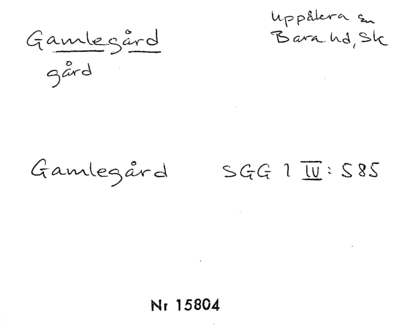 Gamlegård
gård
Uppåkra sn
Bara hd, Sk
Gamlegård SGG 1 IV: 585
Nr 15804